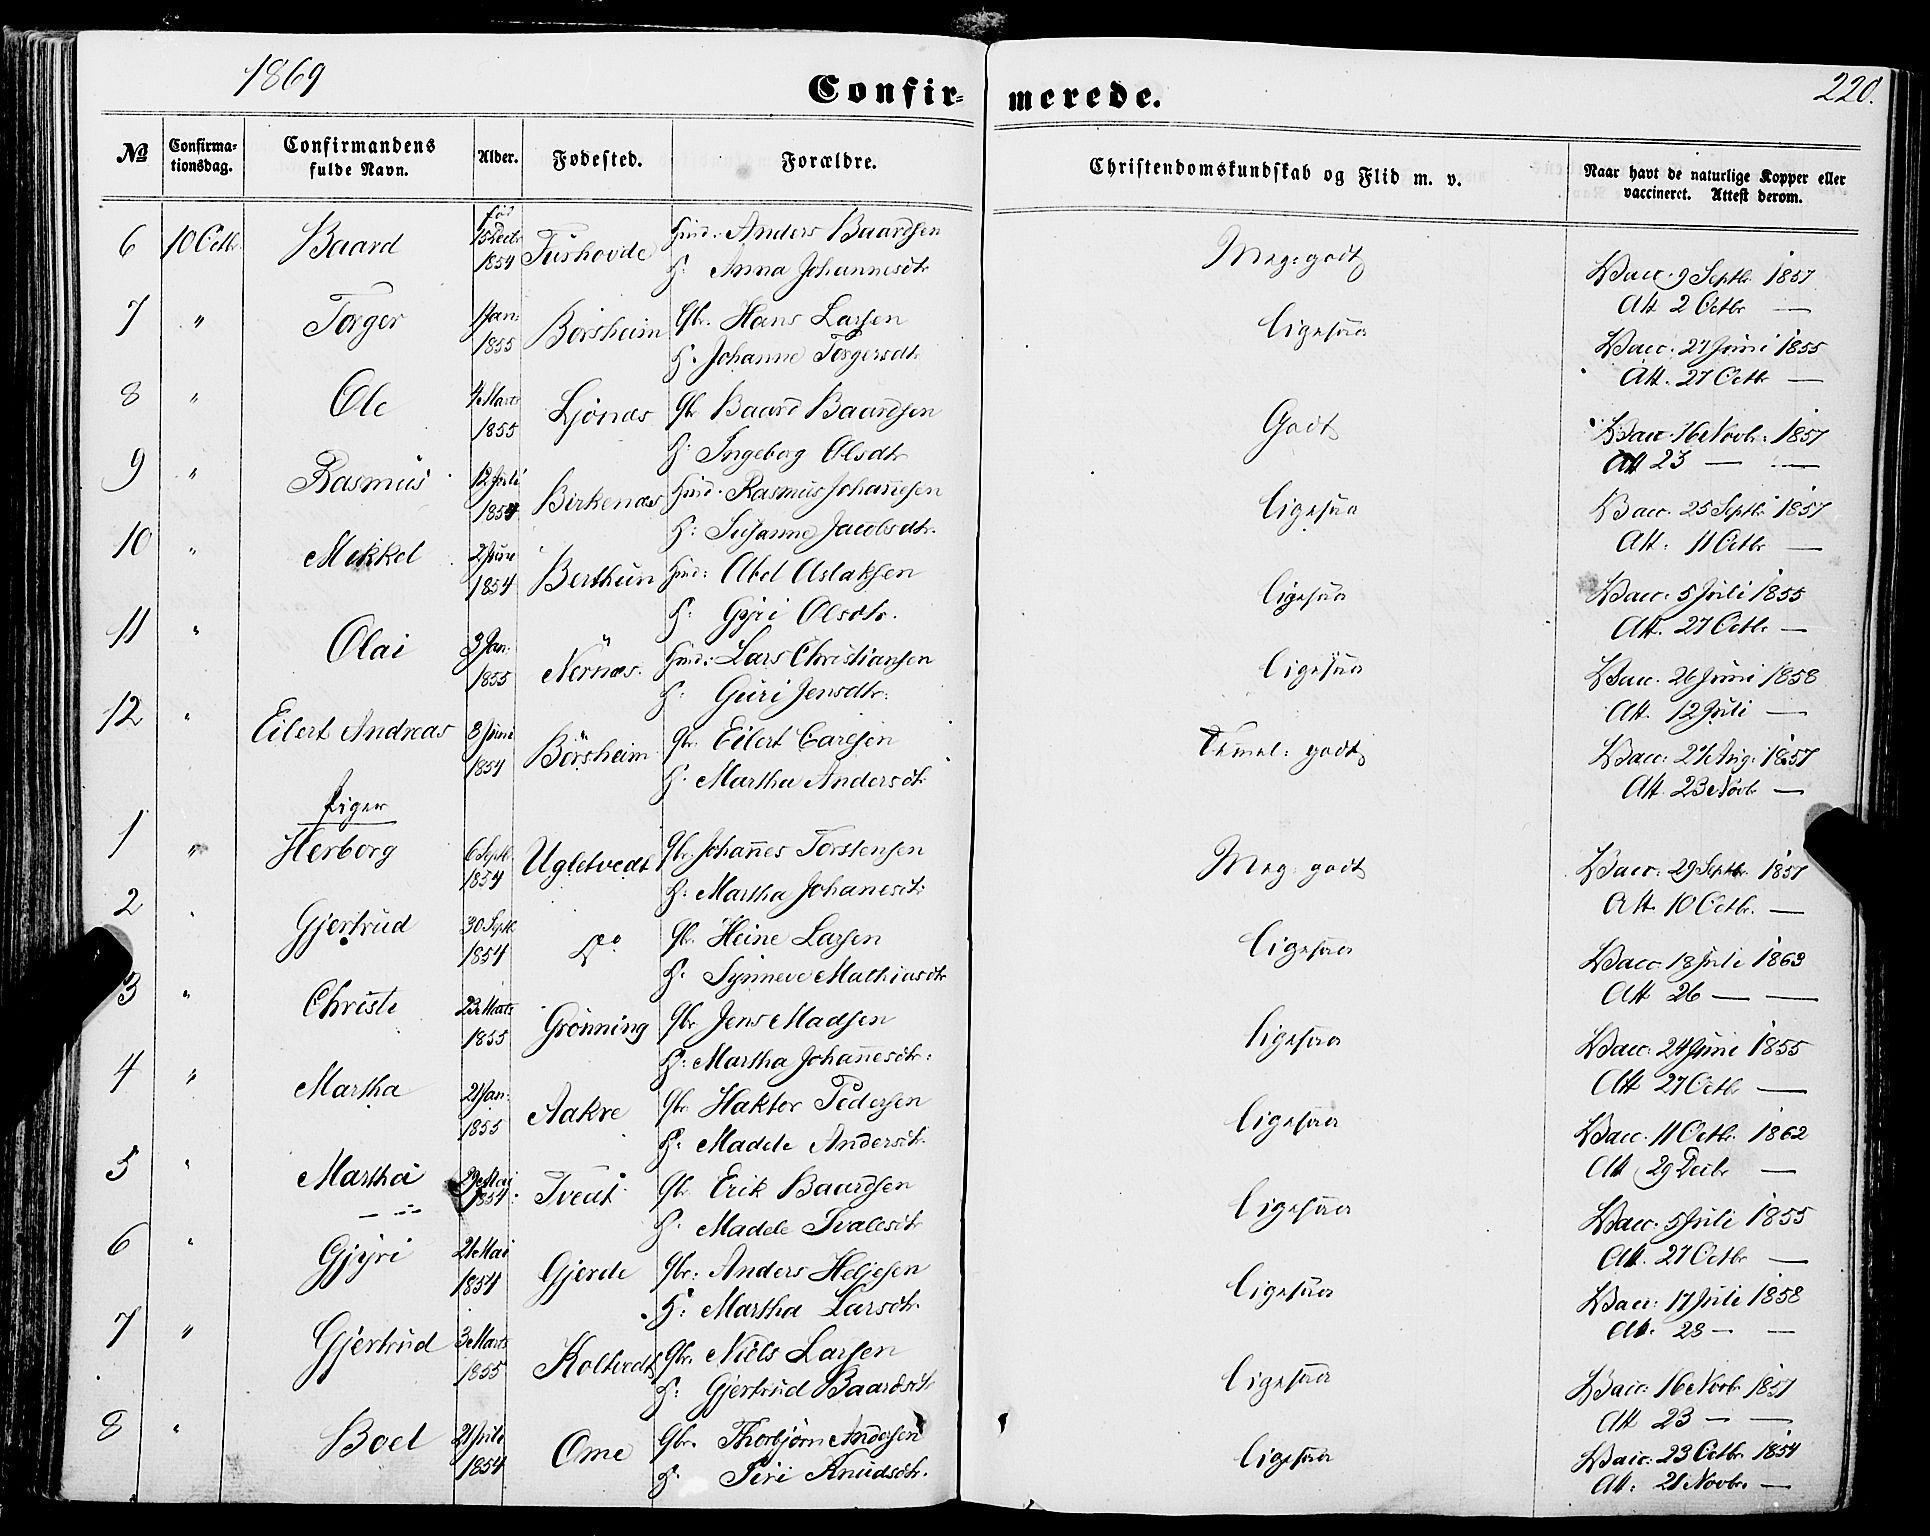 1869
Confir- merede.
220.
№
Confirma-
tionsdag.
Confirmandens
fulde Navn.
Alder.
Fødested.
Forældre.
Christendomskundskab og Flid m. v.
Naar havt de naturlige Kopper eller
vaccineret. Attest derom.
6 10 Octbr Baard fød 15 Decbr 1854 Tushovde Hmd: Anders Baardsen Meg: godt Vacc. 9 Septbr 1857
H: Anna Johannesdtr Att 2 Octbr —
7 " Torger 1 Jan: 1855 Börsheim Gbr. Hans Larsen Ligesaa Vacc. 27 Juni 1855
H. Johanne Torgersdtr Att. 27 Octbr —
8 " Ole 4 Marts 1855 Ljönæs Gbr Baard Baardsen Godt Vacc 16 Novbr. 1857
H: Ingeborg Olsdtr Att 23 — —
9 " Rasmus 12 Juli 1854 Birkenæs Hmd. Rasmus Johanesen Ligesaa Vacc. 25 Septbr 1857
H: Susanne Jacobsdtr. Att: 11 Octbr —
10 " Mikkel 2 Juni 1854 Berthun Hmd: Abel Aslaksen Ligesaa Vacc. 5 Juli 1855
H: Gyri Olsdtr. Att. 27 Octbr —
11 " Olai 3 Jan: 1855 Nernæs. Hmd: Lars Christiansen Ligesaa Vacc. 26 Juni 1858
H: Guri Jensdtr: Att. 12 Juli —
12 " Eilert Andreas 3 Juni 1854 Börsheim Gbr. Eilert Carlsen Temmel: godt Vacc: 27 Aug: 1857
H. Martha Andersdtr Att. 23 Novbr —
Piger
1 " Herborg 6 Septb. 1854 Ugletvedt Gbr. Johannes Torstensen Meg: godt Vacc: 29 Septbr. 1857
H: Martha Johanesdtr Att. 10 Octbr. —
2 " Gjertrud 30 Septb. 1854 Do Gbr. Heine Larsen Ligesaa Vacc. 18 Juli 1863
H. Synneve Mathiasdtr Att 26 — —
3 " Christi 23 Marts 1855 Grönning Gbr Jens Madsen Ligesaa Vacc: 24 Juni 1855
H: Martha Johanesdtr: Att 27 Octbr —
4 " Martha 21 Jan: 1855 Aakre Gbr. Haktor Pedersen Ligesaa Vacc. 11 Octbr. 1862
H. Madele Andersdtr. Att 29 Decbr —
5 " Martha 29 Mai 1854 Tvedt Gbr. Erik Baardsen Ligesaa Vacc. 5 Juli 1855
H. Madele Ivalesdtr Att. 27 Octbr —
6 " Gjyri 21 Mai 1854 Gjerde Gbr: Anders Heljesen Ligesaa Vacc: 17 Juli 1858
H: Martha Larsdtr. Att. 28 — —
7 " Gjertrud 3 Marts 1855 Koltvedt Gbr. Niels Larsen Ligesaa Vacc: 16 Novbr 1857
H: Gjertrud Baardsdtr Att 23 — —
8 " Boel 21 Juli 1854 Ome Gbr. Thorbjörn Andersen Ligesaa Vacc: 23 Octbr 1854
H: Siri Knudsdtr. Att: 21 Novbr. —